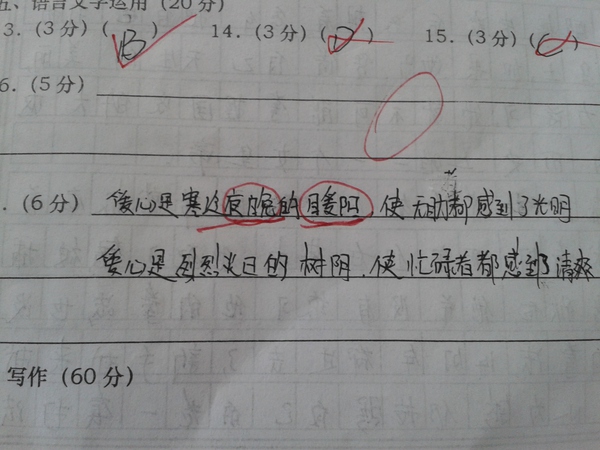 五、语言文字运用（20 分）
3.（3 分）（ B ） 14.（3 分）（ D ） 15.（3 分）（ C ）
6.（5 分）
.（6 分） 爱心是寒冷夜晚的暖阳，使无助都感到了光明
爱心是烈烈炎日的树阴，使忙碌者都感到了清爽
写作（60 分）